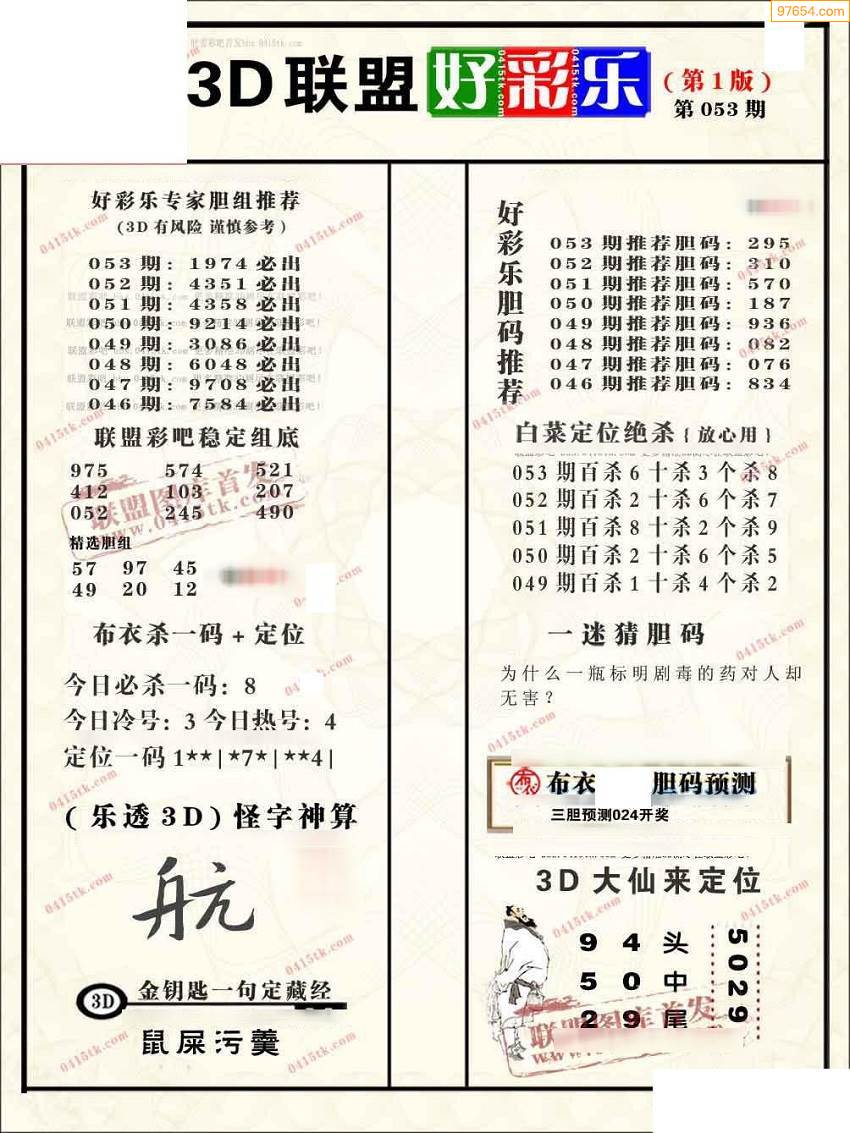 97654.com
3D联盟好彩乐
(第1版)
第053期
好彩乐专家胆组推荐
(3D有风险 谨慎参考)
053期：1974必出
052期：4351必出
051期：4358必出
050期：9214必出
049期：3086必出
048期：6048必出
047期：9708必出
046期：7584必出
联盟彩吧稳定组底
975 574 521
412 103 207
052 245 490
联盟图库首发
www.0415tk.com
精选胆组
57 97 45
49 20 12
布衣杀一码+定位
今日必杀一码：8
今日冷号：3 今日热号：4
定位一码1**|*7*|**4|
(乐透3D)怪字神算
航
3D 金钥匙一句定藏经
鼠屎污羹
好彩乐胆码推荐
053期推荐胆码：295
052期推荐胆码：310
051期推荐胆码：570
050期推荐胆码：187
049期推荐胆码：936
048期推荐胆码：082
047期推荐胆码：076
046期推荐胆码：834
白菜定位绝杀{放心用}
053期百杀6十杀3个杀8
052期百杀2十杀6个杀7
051期百杀8十杀2个杀9
050期百杀2十杀6个杀5
049期百杀1十杀4个杀2
一迷猜胆码
为什么一瓶标明剧毒的药对人却
无害？
布衣 胆码预测
三胆预测024开奖
3D大仙来定位
94头
50中
29尾
5029
联盟图库首发
0415tk.com